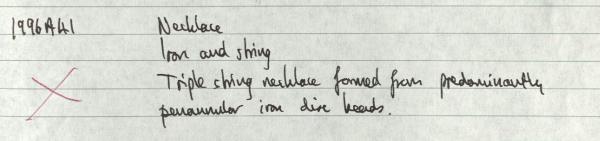 1996A41 Necklace
Iron and string
Triple string necklace formed from predominantly
penannular iron disc beads.